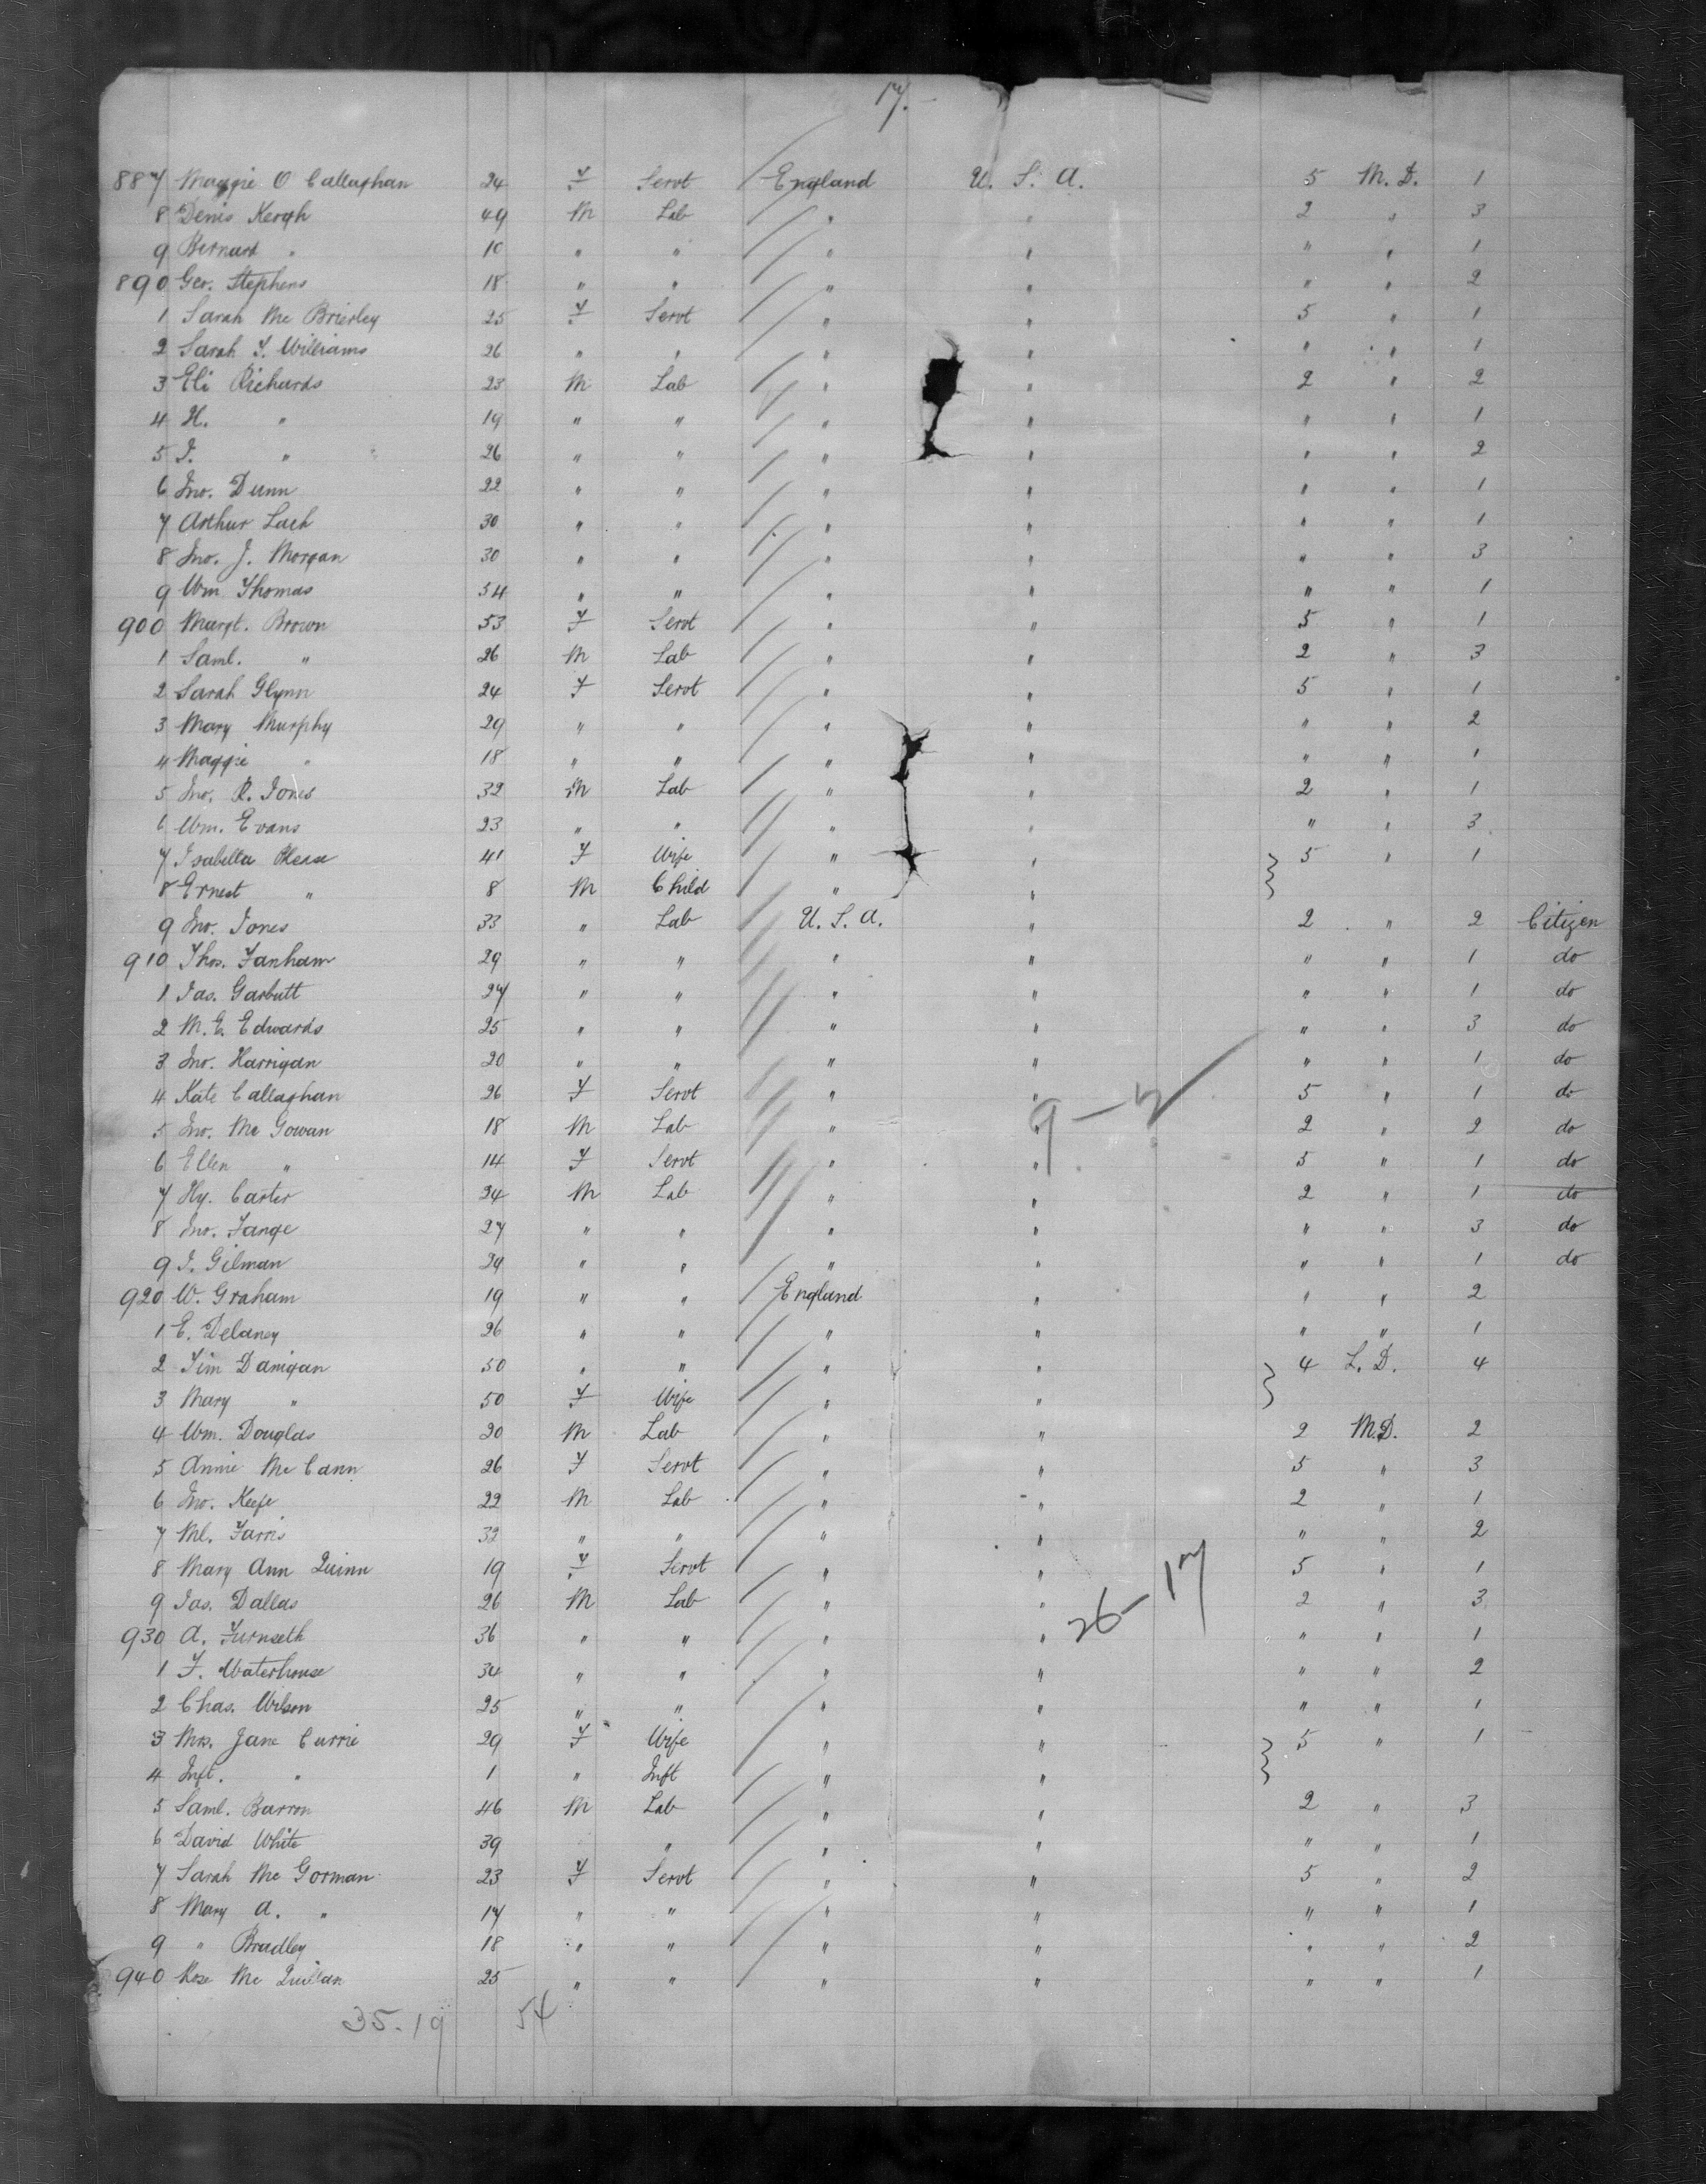 17.-
887 Maggie O Callaghan 24 F Servt England U. S. A. 5 M. D. 1
8 Denis Keogh 49 M Lab " " 2 " 3
9 Bernard " 10 " " " " " " 1
890 Geo. Stephens 18 " " " " " " 2
1 Sarah Mc Brierley 25 F Servt " " 5 " 1
2 Sarah F. Williams 26 " " " " " " 1
3 Eli Richards 23 M Lab " " 2 " 2
4 H. " 19 " " " " " " 1
5 J. " 26 " " " " " " 2
6 Jno. Dunn 22 " " " " " " 1
7 Arthur Lach 30 " " " " " " 1
8 Jno. J. Morgan 30 " " " " " " 3
9 Wm Thomas 54 " " " " " " 1
900 Margt. Brown 53 F Servt " " 5 " 1
1 Saml. " 26 M Lab " " 2 " 3
2 Sarah Glynn 24 F Servt " " 5 " 1
3 Mary Murphy 29 " " " " " " 2
4 Maggie " 18 " " " " " " 1
5 Jno. R. Jones 32 M Lab " " 2 " 1
6 Wm. Evans 23 " " " " " " 3
7 Isabella 41 F Wife " " } 5 " 1
8 Ernest " 8 M Child " "
9 Jno. Jones 33 " Lab U. S. A. " 2 " 2 Citizen
910 Thos. Fanham 29 " " " " " " 1 do
1 Jas. Garbutt 27 " " " " " " 1 do
2 M. E. Edwards 25 " " " " " " 3 do
3 Jno. Harrigan 20 " " " " " " 1 do
4 Kate Callaghan 26 F Servt " " 5 " 1 do
9 - 2
5 Jno. Mc Gowan 18 M Lab " " 2 " 2 do
6 Ellen " 14 F Servt " " 5 " 1 do
7 Hy. Carter 24 M Lab " " 2 " 1 do
8 Jno. Fange 27 " " " " " " 3 do
9 J. Gilman 24 " " " " " " 1 do
920 W. Graham 19 " " England " " " 2
1 E. Delaney 26 " " " " " " 1
2 Tim Danigan 50 " " " " } 4 L. D. 4
3 Mary " 50 F Wife " "
4 Wm. Douglas 20 M Lab " " 2 M.D. 2
5 Annie Mc Cann 26 F Servt " " 5 " 3
6 Jno. Keefe 22 M Lab " " 2 " 1
7 Ml. Farris 32 " " " " " " 2
8 Mary Ann Quinn 19 F Servt " " 5 " 1
26-17
9 Jas. Dallas 26 M Lab " " 2 " 3
930 A. Furnseth 36 " " " " " " 1
1 F. Waterhouse 34 " " " " " " 2
2 Chas. Wilson 25 " " " " " " 1
3 Mrs. Jane Currie 29 F Wife " " } 5 " 1
4 Inft. " 1 " Inft " "
5 Saml. Barron 46 M Lab " " 2 " 3
6 David White 39 " " " " " 1
7 Sarah Mc Gorman 23 F Servt " " 5 " 2
8 Mary A. " 17 " " " " " " 1
9 " Bradley 18 " " " " " " 2
940 Rose Mc Quillan 25 " " " " " " 1
35.19 54